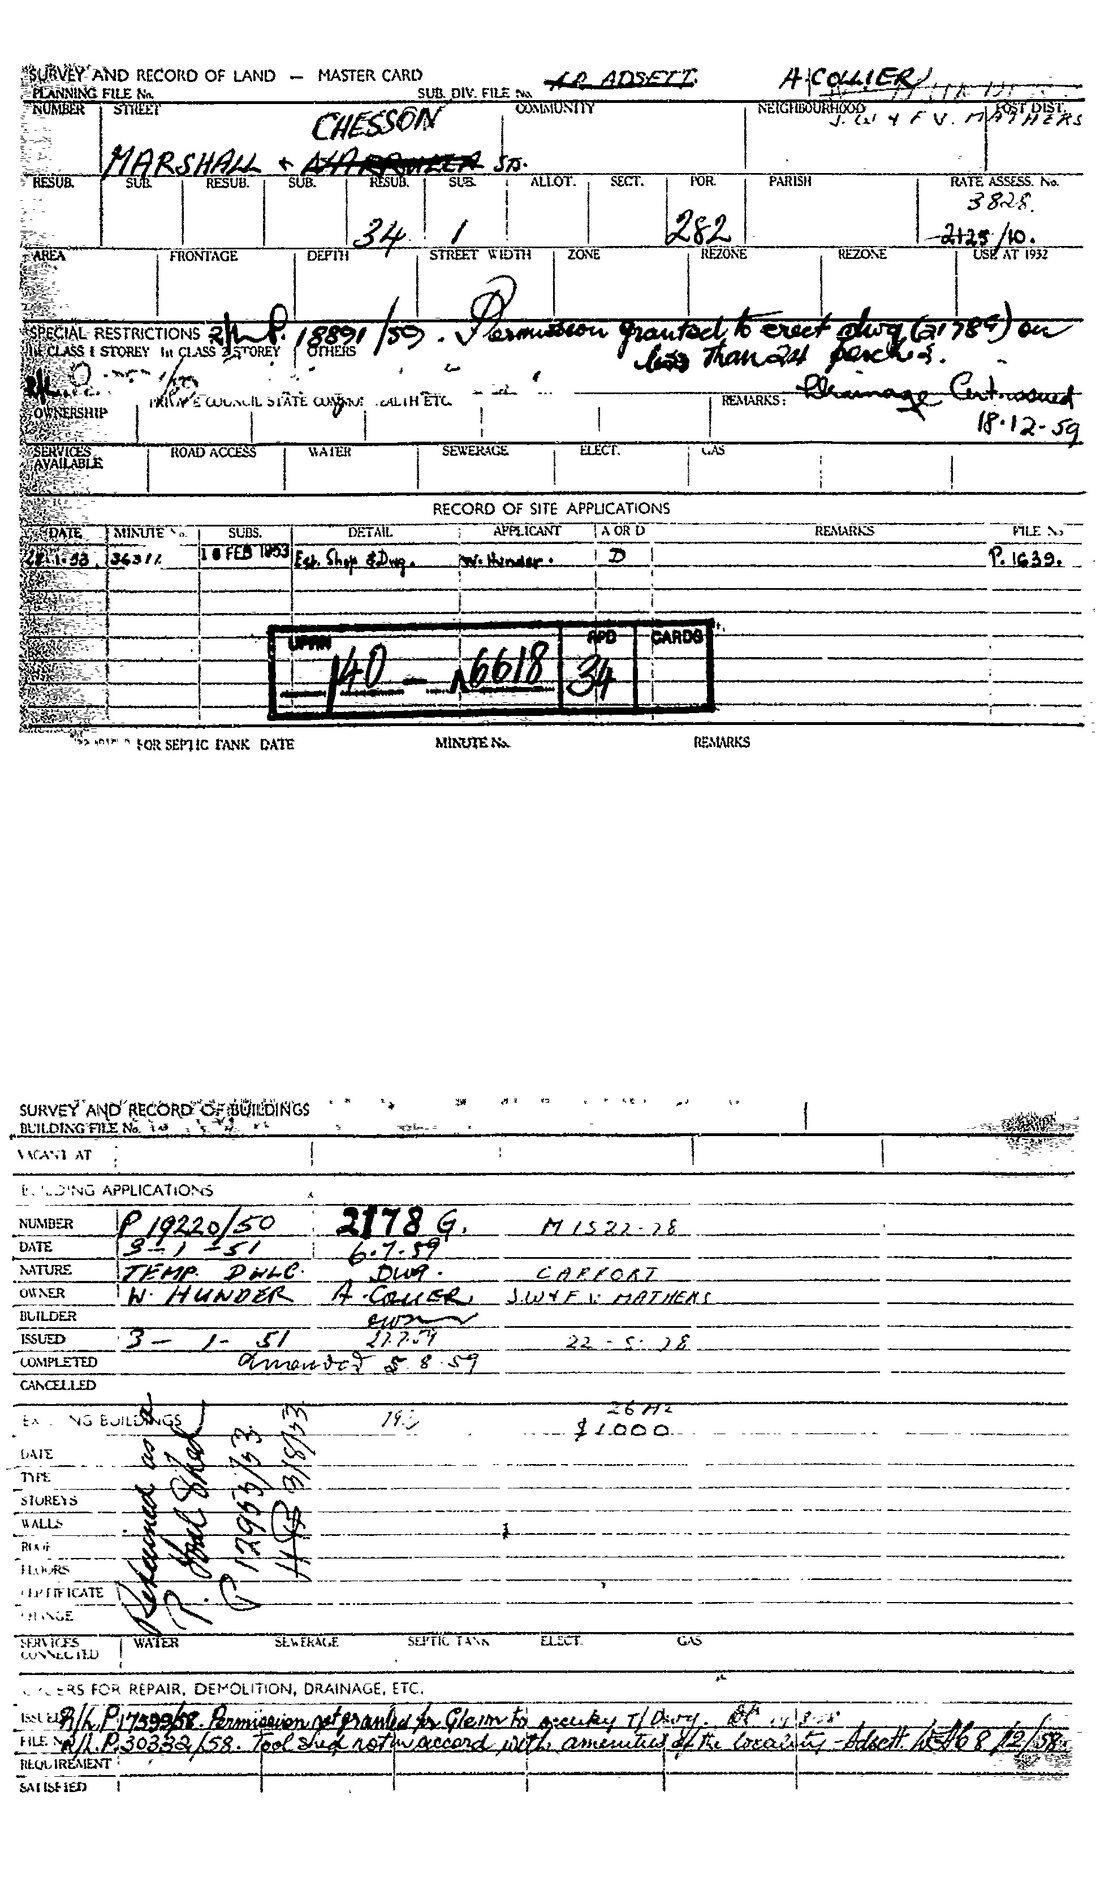 SURVEY AND RECORD OF LAND — MASTER CARD A.R. ADSETT. A COLLIER
PLANNING FILE No. SUB. DIV. FILE No.
NUMBER STREET COMMUNITY NEIGHBOURHOOD POST DIST.
CHESSON J.W & F V. MATHERS
MARSHALL & STS.
RESUB. SUB. RESUB. SUB. RESUB. SUB. ALLOT. SECT. POR. PARISH RATE ASSESS. No.
3828.
34 1 282 2125/10.
AREA FRONTAGE DEPTH STREET WIDTH ZONE REZONE REZONE USE AT 1932
SPECIAL RESTRICTIONS R/L P. 18891/59. Permission granted to erect dwg (2178G) on
In CLASS 1 STOREY In CLASS 2 STOREY OTHERS less than 24 perches.
PRIVATE COUNCIL STATE COMMONWEALTH ETC. REMARKS: Drainage Cert. issued
OWNERSHIP 18.12.59
SERVICES AVAILABLE ROAD ACCESS WATER SEWERAGE ELECT. GAS
RECORD OF SITE APPLICATIONS
DATE MINUTE No. SUBS. DETAIL APPLICANT A OR D REMARKS FILE No
16 FEB 1953 Est. Shop & Dwg. W. Hunder. D P. 1639.
UPRN RPD CARDS
140 6618 34
FOR SEPTIC TANK DATE MINUTE No. REMARKS
SURVEY AND RECORD OF BUILDINGS
BUILDING FILE No.
VACANT AT
BUILDING APPLICATIONS
NUMBER P 19220/50 2178 G. M 1522-78
DATE 3-1-51 6.7.59
NATURE TEMP. DWLG. DWG. CARPORT
OWNER W. HUNDER A. COLLIER J.W & F V. MATHERS
BUILDER owner
ISSUED 3-1-51 27.7.59 22-5-78
COMPLETED amended 5.8.59
CANCELLED
EXISTING BUILDINGS 26 M2
$1000
DATE
TYPE
STOREYS
WALLS
ROOF
FLOORS
CERTIFICATE
CHANGE
Retained as a
P. Tool Shed
P 12953/53
3/8/53
SERVICES CONNECTED WATER SEWERAGE SEPTIC TANK ELECT. GAS
ORDERS FOR REPAIR, DEMOLITION, DRAINAGE, ETC.
ISSUED R/L P17599/58. Permission not granted for Glenn to occupy T/Dwg.
FILE No R/L P.30332/58. Tool shed not in accord with amenities of the locality - Adsett. 8/12/58.
REQUIREMENT
SATISFIED